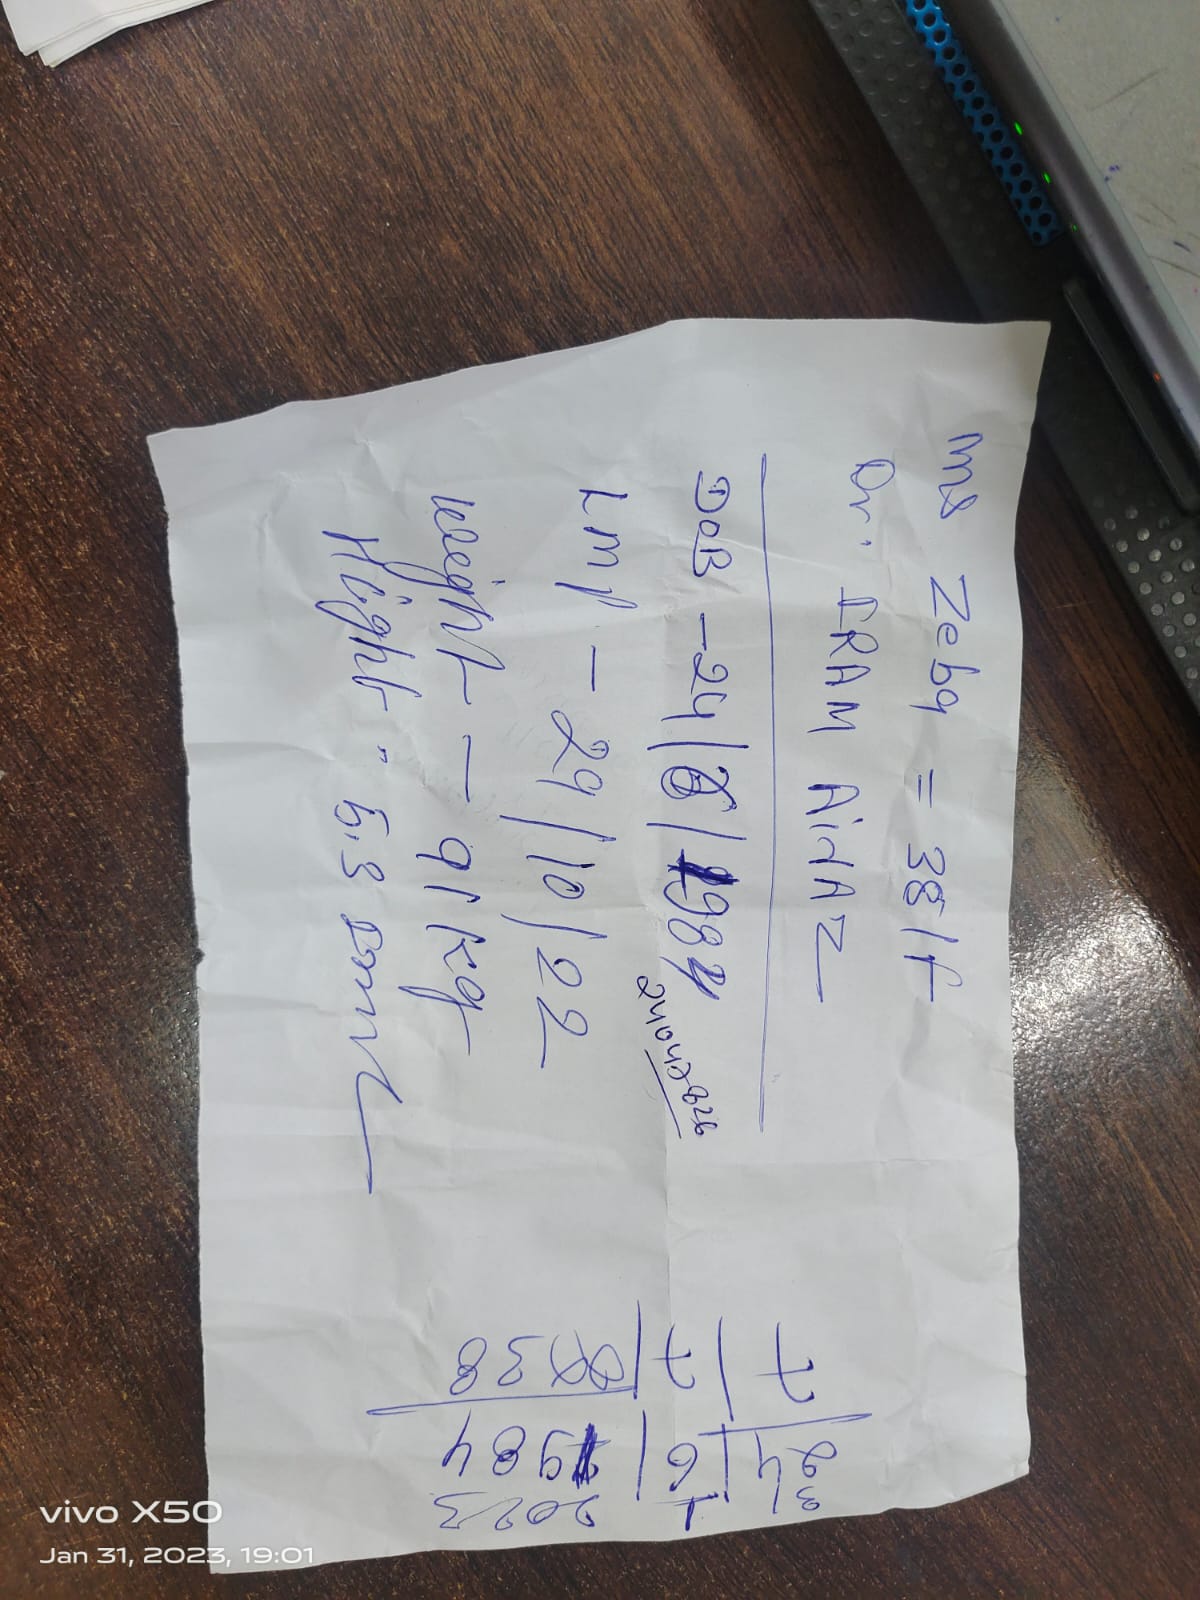 Ms Zeba = 38/f
Dr. IRAM AijAZ
DoB - 24/6/1984
LMP - 29/10/22
weight - 91 kg
Hight " 5.3
31/1/2023
24/6/1984
7/7/38
vivo X50
Jan 31, 2023, 19:01